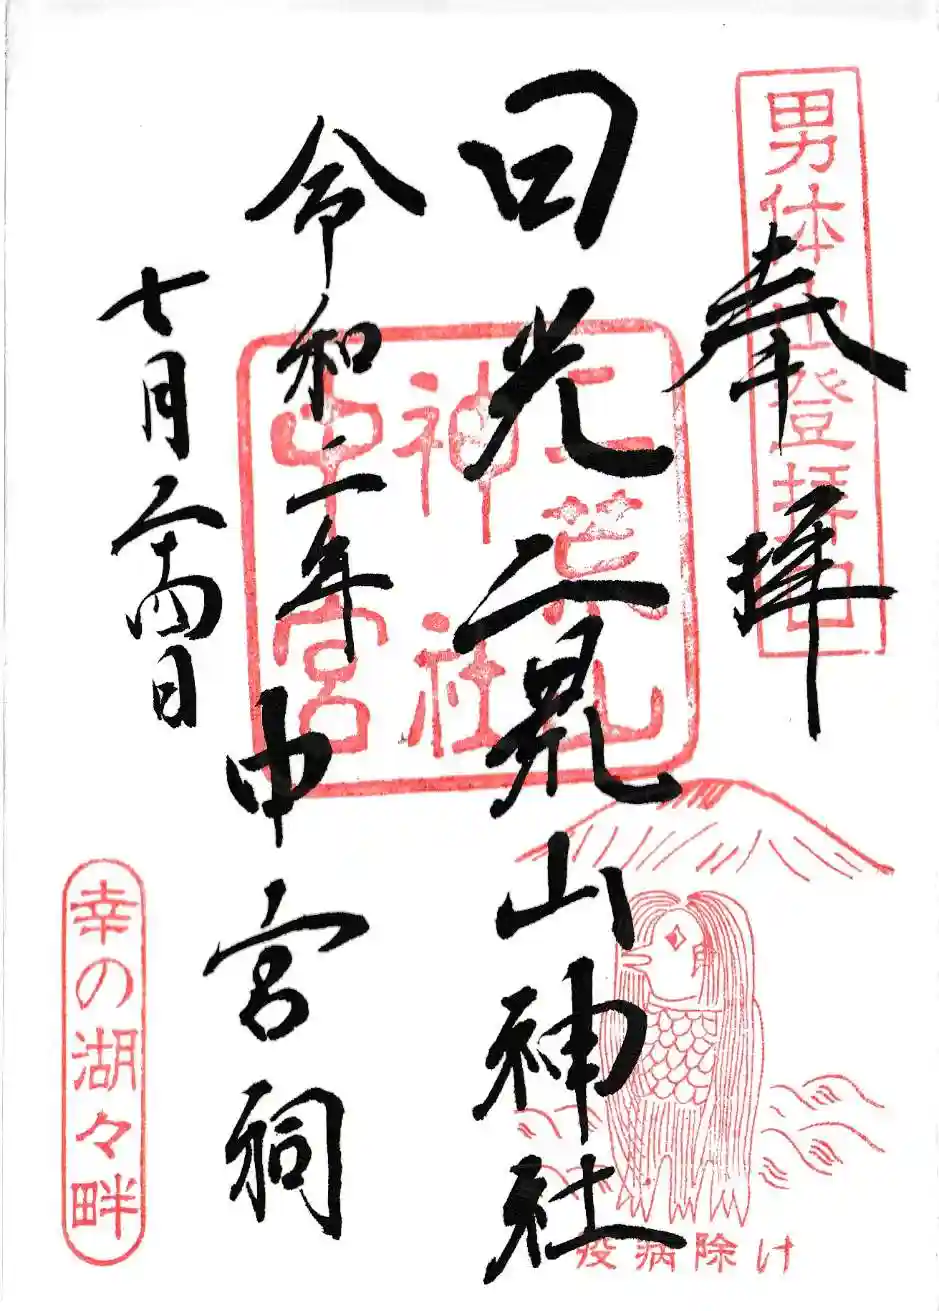 男体山登拝口
奉拝
日光二荒山神社
二荒山
神社
中宮
令和二年
中宮祠
七月二十四日
幸の湖々畔
疫病除け